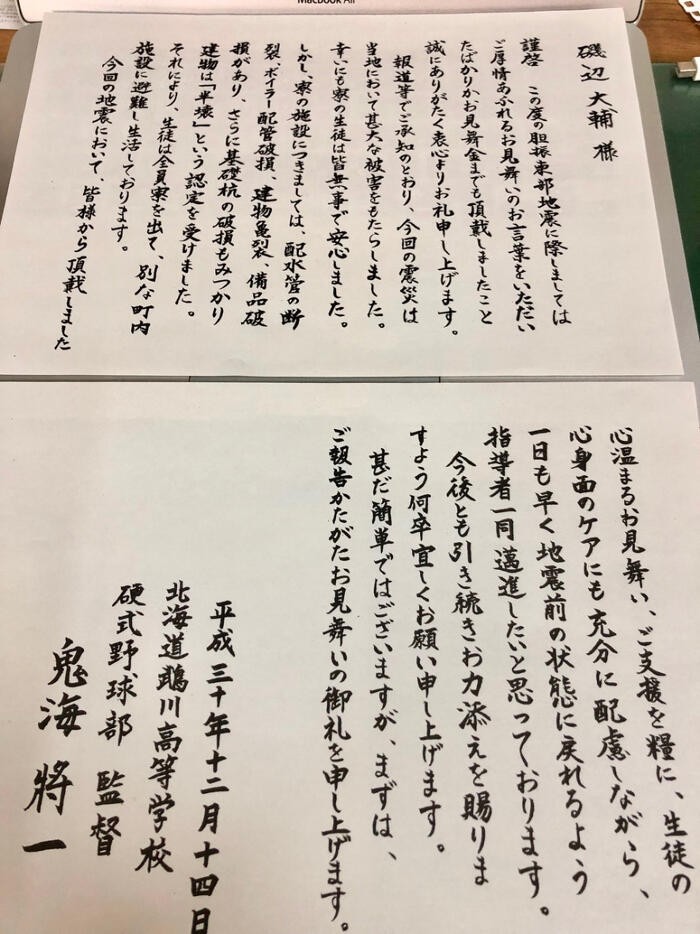 MacBook Air
磯辺 大輔 様
謹啓 この度の胆振東部地震に際しましては
ご厚情あふれるお見舞いのお言葉をいただい
たばかりかお見舞金までも頂載しましたこと
誠にありがたく衷心よりお礼申し上げます。
報道等でご承知のとおり、今回の震災は
当地において甚大な被害をもたらしました。
幸いにも寮の生徒は皆無事で安心しました。
しかし、寮の施設につきましては、配水管の断
裂、ボイラー配管破損、建物亀裂、備品破
損があり、さらに基礎杭の破損もみつかり
建物は「半壊」という認定を受けました。
それにより、生徒は全員寮を出て、別な町内
施設に避難し生活しております。
今回の地震において、皆様から頂載しました
心温まるお見舞い、ご支援を糧に、生徒の
心身面のケアにも充分に配慮しながら、
一日も早く地震前の状態に戻れるよう
指導者一同邁進したいと思っております。
今後とも引き続きお力添えを賜りま
すよう何卒宜しくお願い申し上げます。
甚だ簡単ではございますが、まずは、
ご報告かたがたお見舞いの御礼を申し上げます。
平成三十年十二月十四日
北海道鵡川高等学校
硬式野球部 監督
鬼海 將一